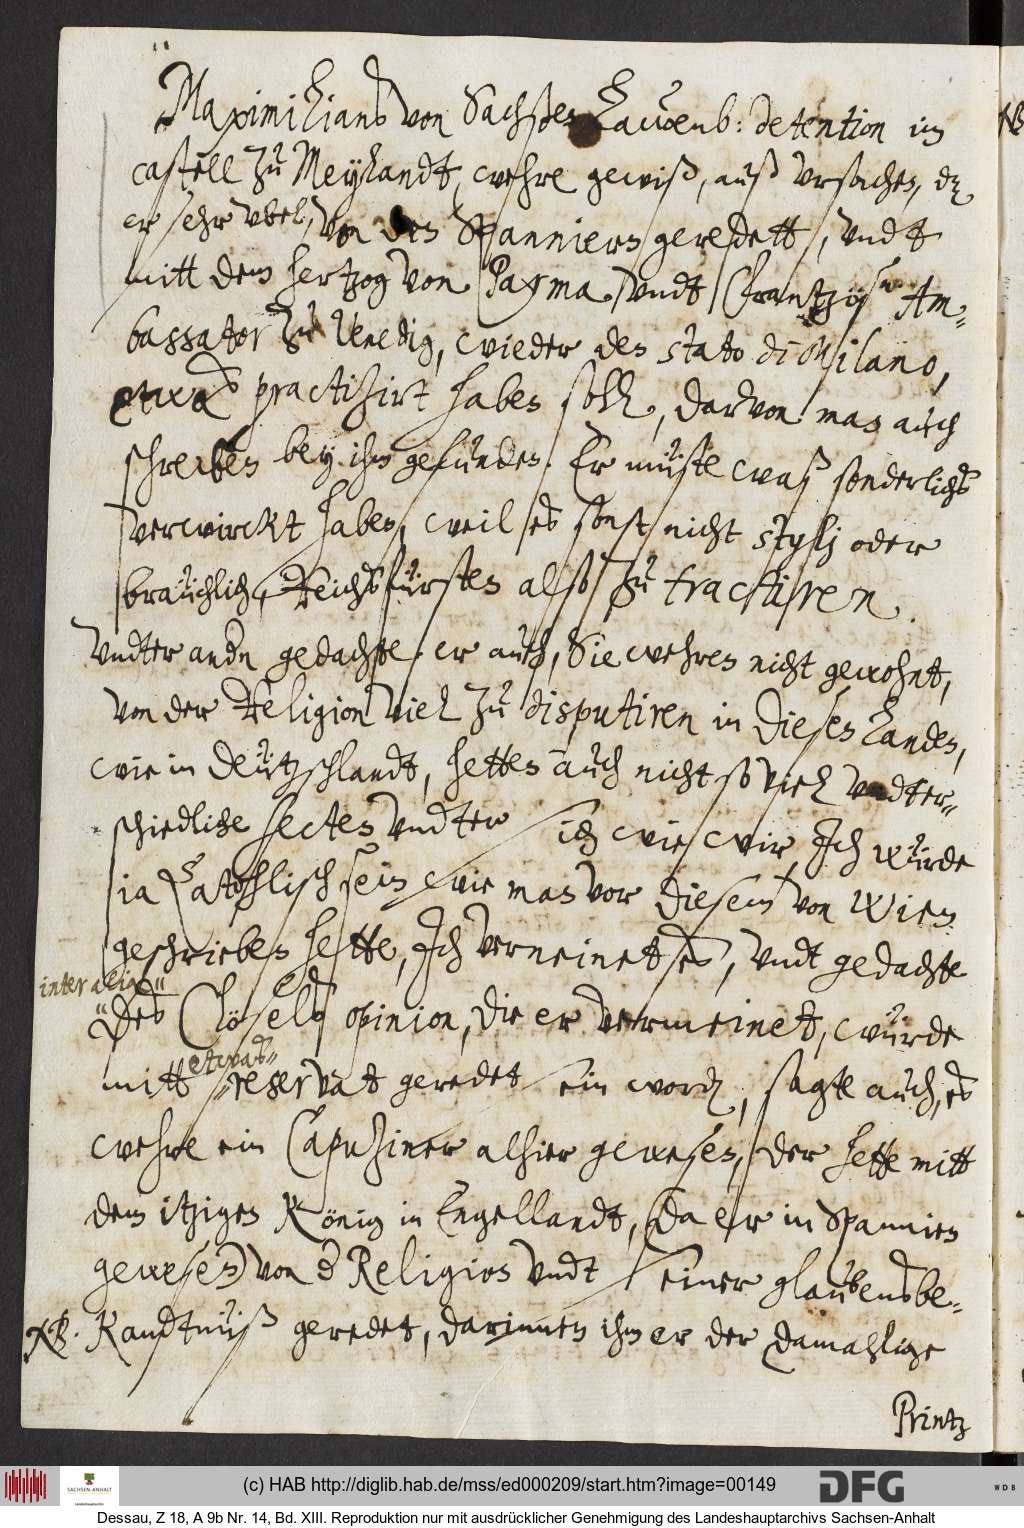 Maximilians von Sachsen Lauenb: detention im
castell zu Meylandt, wehre gewiß, auß ursachen, dz
er sehr ubel, von den Spanniern geredett, undt
mitt dem hertzog von Parma, undt Frantzösn Am-
bassator zu Venedig, wieder den stato di Milano,
etwas practizirt haben soll, darvon man auch
schreiben bey ihm gefunden. Er müste waß sonderlichs
verwirckt haben, weil es sonst nicht stylj oder
bräuchlich, Reichsfürsten also zu tractiren.
Undter andn gedachte er auch, Sie wehren nicht gewohnt,
von der Religion viel zu disputiren in diesen Landen,
wie in deützschlandt, hetten auch nicht so viel undter-
schiedliche secten undter sich wie wir, Ich würde
ia Catohlisch sein wie man vor diesem von Wien
geschrieben hette, Ich verneinet es, undt gedachte
inter alia
des Clösels opinion, die er vermeinet, würde
etwas
mitt reservat geredet sein word, sagte auch, es
wehre ein Capuziner alhier gewesen, der hette mitt
dem itzigen König in Engellandt, (da er in Spannien
gewesen) von d Religion undt seiner glaubensbe-
NB. Kandtnüß geredet, darinnen ihm er der damahlige
Printz
(c) HAB http://diglib.hab.de/mss/ed000209/start.htm?image=00149
SACHSEN-ANHALT
DFG
WDB
Dessau, Z 18, A 9b Nr. 14, Bd. XIII. Reproduktion nur mit ausdrücklicher Genehmigung des Landeshauptarchivs Sachsen-Anhalt